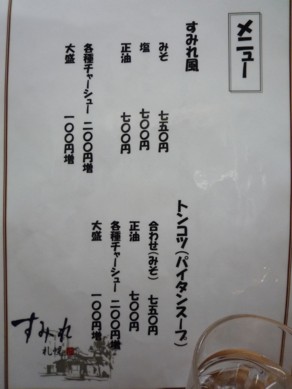 メニュー
すみれ風
みそ 七五〇円
塩 七〇〇円
正油 七〇〇円
各種チャーシュー 二〇〇円増
大盛 一〇〇円増
トンコツ(パイタンスープ)
合わせ(みそ) 七五〇円
正油 七〇〇円
各種チャーシュー 二〇〇円増
大盛 一〇〇円増
すみれ
札幌